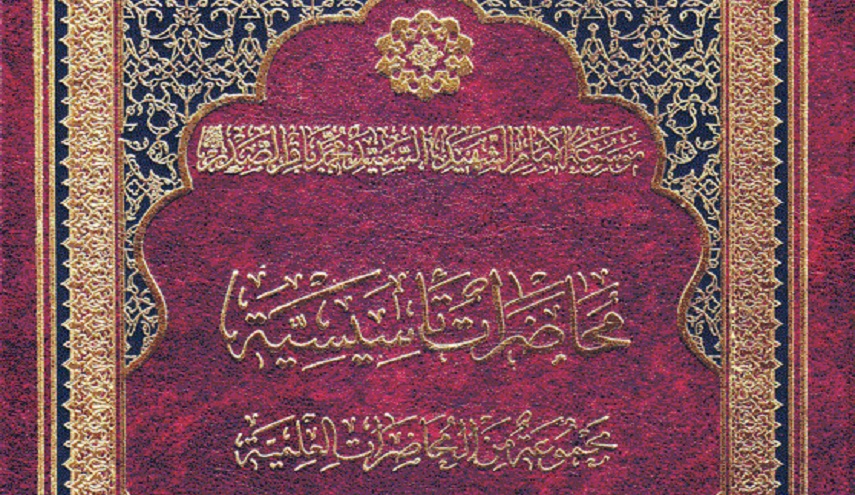 موسوعة الإمام الشهيد السيد محمد باقر الصدر
محاضرات تأسيسية
مجموعة من المحاضرات العلمية